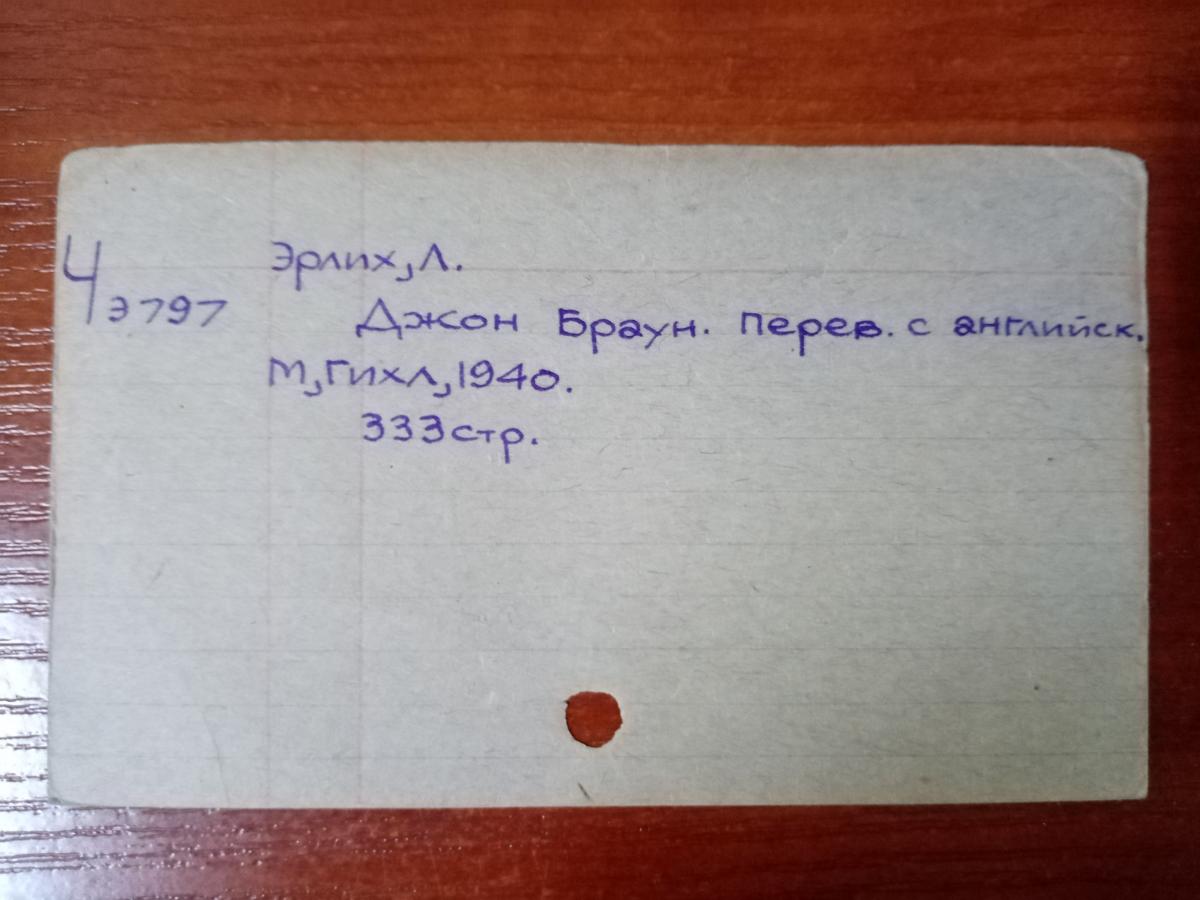 Ч Эрлих, Л.
Э797 Джон Браун. Перев. с английск.
М, Гихл, 1940.
333 стр.